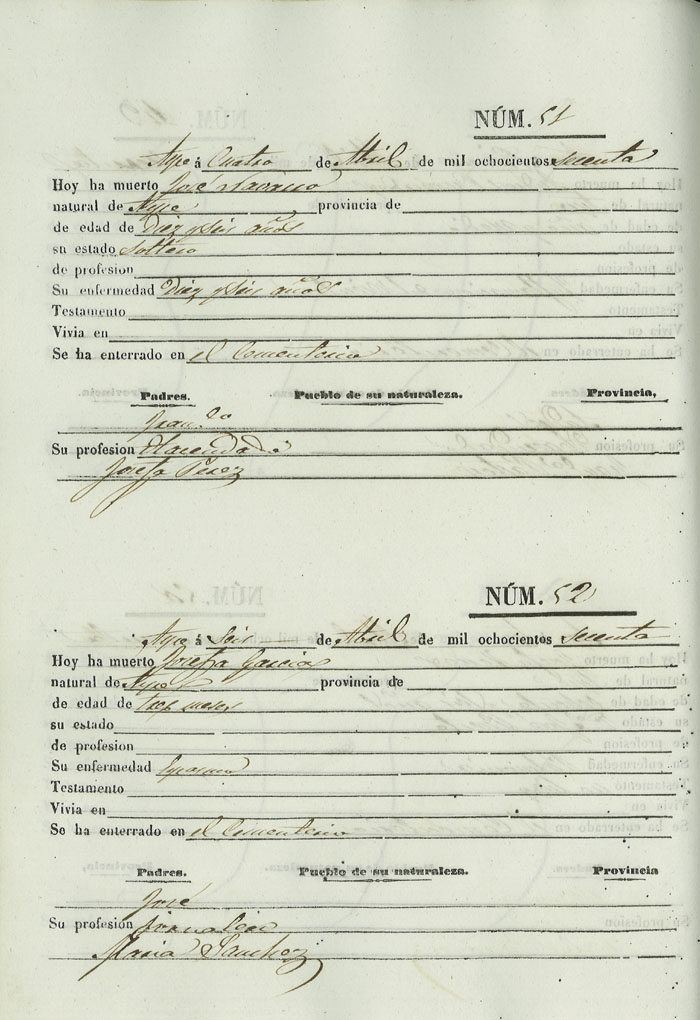 NÚM. 51
Aspe á Cuatro de Abril de mil ochocientos sesenta
Hoy ha muerto José Navarro
natural de Aspe provincia de
de edad de Diez y seis años
su estado Soltero
de profesion
Su enfermedad Diez y seis años
Testamento
Vivia en
Se ha enterrado en el Cementerio
Padres. Pueblo de su naturaleza. Provincia,
Fran.co
Su profesion Hacendado
Josefa Perez
NÚM. 52
Aspe á Seis de Abril de mil ochocientos sesenta
Hoy ha muerto Josefa Garcia
natural de Aspe provincia de
de edad de tres meses
su estado
de profesion
Su enfermedad
Testamento
Vivia en
Se ha enterrado en el Cementerio
Padres. Pueblo de su naturaleza. Provincia
José
Su profesion Jornalero
Maria Sanchez